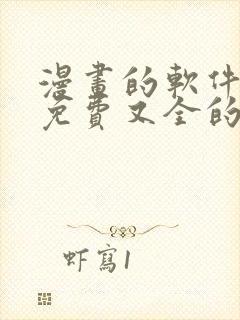 漫畫的軟件
免費又全的
虾寫1